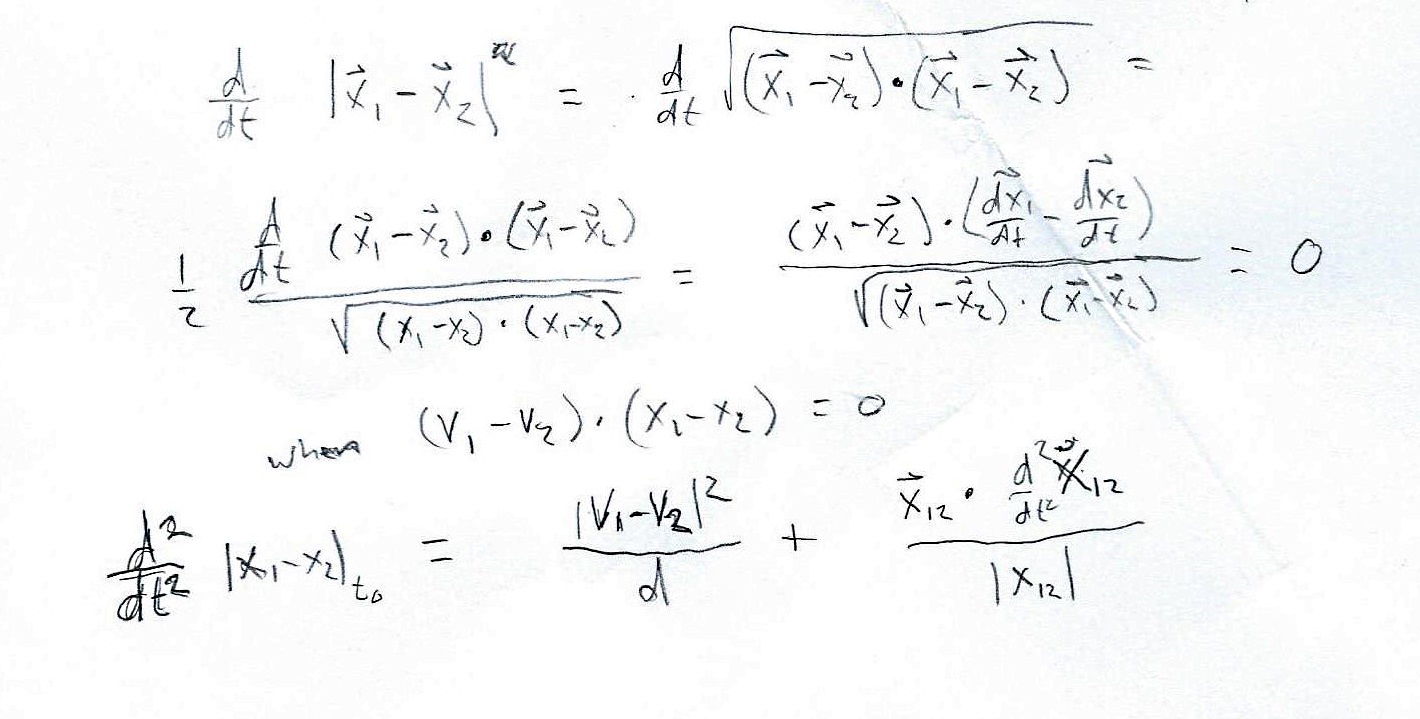 d/dt |x⃗₁ - x⃗₂| = d/dt √((x⃗₁ - x⃗₂)·(x⃗₁ - x⃗₂)) =
1/2 (d/dt (x⃗₁ - x⃗₂)·(x⃗₁ - x⃗₂))/√((x₁ - x₂)·(x₁ - x₂)) = ((x⃗₁ - x⃗₂)·(dx⃗₁/dt - dx⃗₂/dt))/√((x⃗₁ - x⃗₂)·(x⃗₁ - x⃗₂)) = 0
when (v₁ - v₂)·(x₁ - x₂) = 0
d²/dt² |x₁ - x₂|_t₀ = |v₁ - v₂|²/d + (x⃗₁₂ · d²/dt² x⃗₁₂)/|x₁₂|